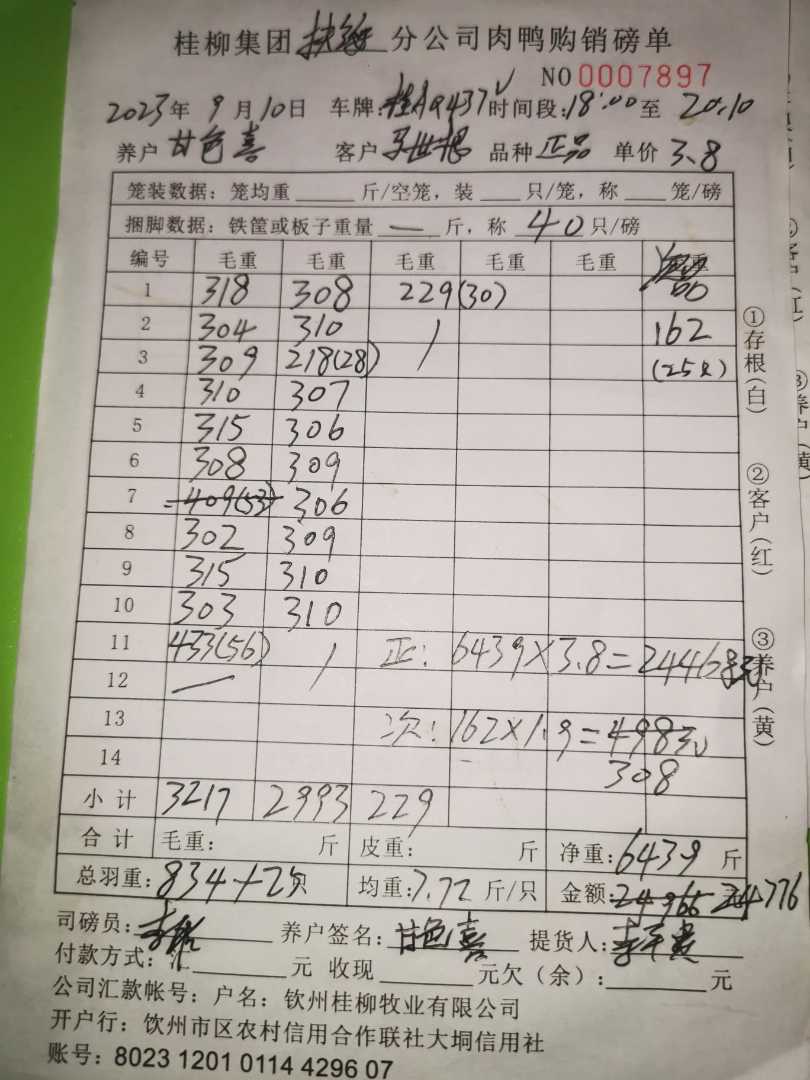 桂柳集团扶绥分公司肉鸭购销磅单
NO 0007897
2023年9月10日 车牌:桂AQ437V 时间段:18:00至20:10
养户 甘色喜 客户 品种 正品 单价 3.8
笼装数据：笼均重 斤/空笼，装 只/笼，称 笼/磅
捆脚数据：铁筐或板子重量 一 斤，称 40 只/磅
编号 毛重 毛重 毛重 毛重 毛重 重
1 318 308 229(30)
2 304 310 / 162
3 309 218(28) (25只)
4 310 307
5 315 306
6 308 309
7 409(53) 306
8 302 309
9 315 310
10 303 310
11 433(56) / 正: 6439×3.8=24468元
12 —
13 次: 162×1.9=498元
14 308
小计 3217 2993 229
合计 毛重: 斤 皮重: 斤 净重: 6439 斤
总羽重: 834+25只 均重: 7.72 斤/只 金额: 24966 24776
司磅员: 养户签名: 甘色喜 提货人:
付款方式: 汇 元 收现 元欠（余）: 元
公司汇款帐号：户名：钦州桂柳牧业有限公司
开户行：钦州市区农村信用合作联社大垌信用社
账号：8023 1201 0114 4296 07
①存根(白)
②客户(红)
③养户(黄)